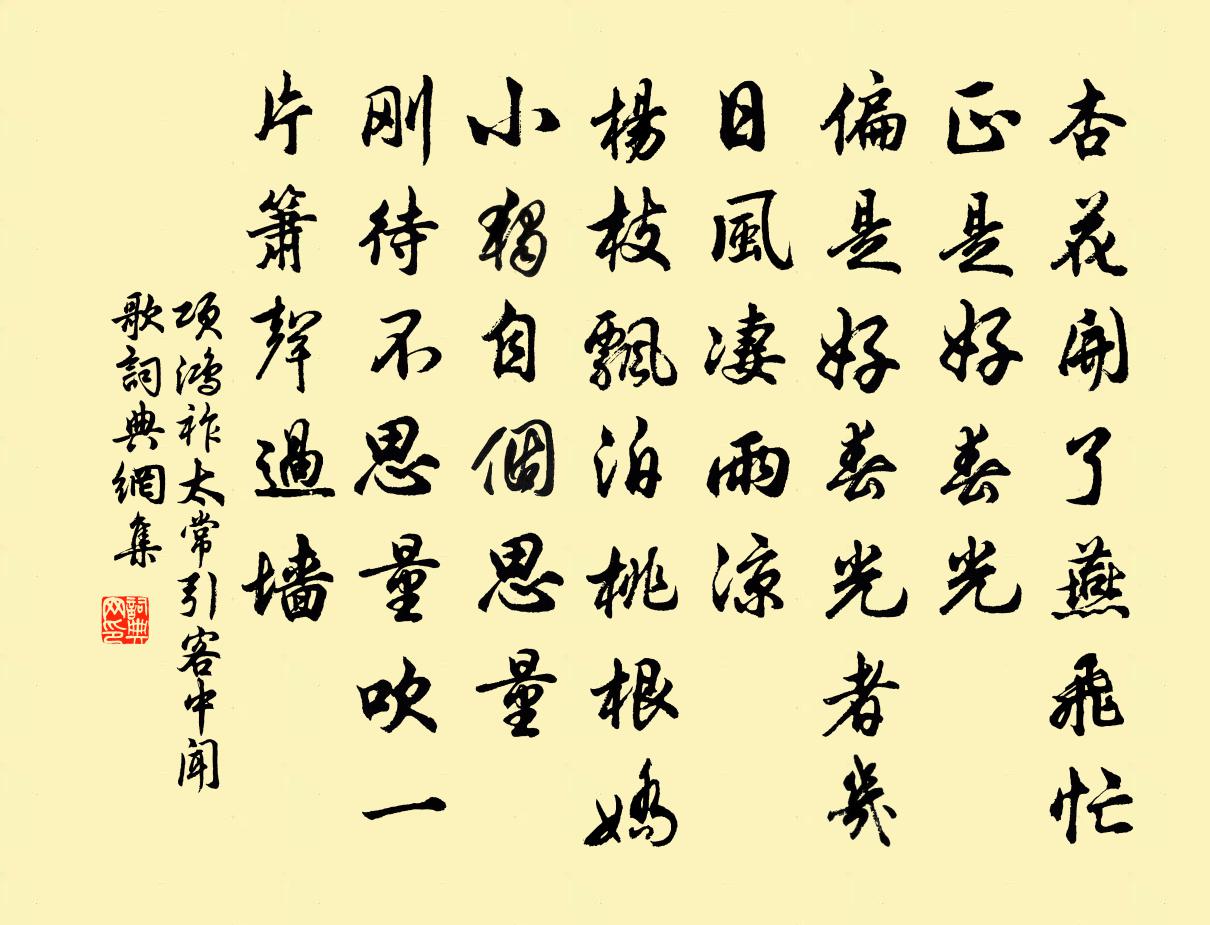 杏花開了燕飛忙
正是好春光
偏是好春光者幾
日風淒雨涼
楊枝飄泊桃根嬌
小獨自個思量
刚待不思量吹一
片簫聲過墻
項鴻祚太常引客中聞
歌詞典網集
詞典
网印